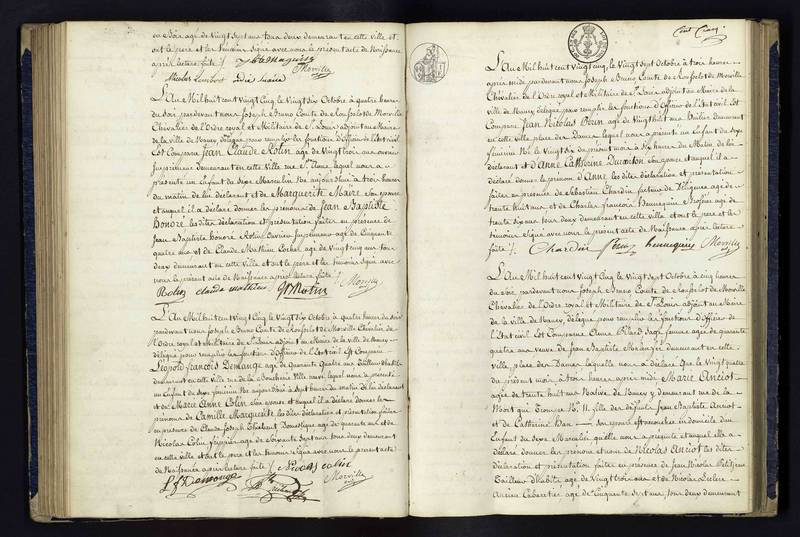 ou Boix age de Vingt Sept ans tous deux demeurant en cette Ville et
ont le pere et les temoins signé avec nous le présent acte de Naissance
après lecture faite /.
Morville
Nicolas Lembert
L'An Mil huit cent Vingt Cinq le Vingt Six Octobre à quatre heures
du Soir, pardevant nous Joseph Bruno Comte de Morville
Chevalier de l'Ordre royal et Militaire de St Louis adjoint au Maire
de la Ville de Nancy, délégué pour remplir les fonctions d'Officier de l'état civil
Est Comparu Jean Claude Rolin age de Vingt trois ans ouvrier
Imprimeur demeurant en cette Ville rue St lequel nous a
présenté un Enfant du Sexe Masculin Né aujourd'hui à trois heures
du matin de lui déclarant et de Marguerite Maire Son épouse
et auquel il a déclaré donner les prénoms de Jean Baptiste
Honoré les dites déclaration et présentation faites en présence de
Jean Baptiste honoré Rolin Ouvrier Imprimeur age de Cinquante
quatre ans et de Claude Mathieu age de Vingt cinq ans tous
deux demeurant en cette Ville et ont le pere et les temoins Signé avec
nous le présent acte de Naissance après lecture faite /.
Rolin claude mathieu Rolin Morville
L'An Mil huit cent Vingt Cinq le Vingt Six Octobre à quatre heures du Soir
pardevant nous Joseph Bruno Comte de Morville Chevalier de
l'Ordre royal et Militaire de St Louis adjoint au Maire de la Ville de Nancy
délégué pour remplir les fonctions d'Officier de l'état civil Est Comparu
Léopold François Demange age de Quarante Quatre ans
demeurant en cette Ville rue de la Boucherie Ville neuve, lequel nous a présenté
un Enfant du Sexe féminin Né aujourd'hui à Sept heures du matin de lui déclarant
et de Marie Anne Colin Son épouse et auquel il a déclaré donner les
prénoms de Camille Marguerite les dites déclaration et présentation faites
en présence de Claude Joseph Thiebaut Domestique age de quarante ans et de
Nicolas Colin age de Soixante Sept ans tous deux demeurant
en cette Ville et ont le pere et les temoins Signé avec nous le présent acte
de Naissance après lecture faite /. Nicolas colin
Demange Morville
Cent Cinq
L'An Mil huit cent Vingt Cinq, le Vingt Sept Octobre à trois heures
après midi pardevant nous Joseph Bruno Comte de Morville
Chevalier de l'Ordre royal et Militaire de St Louis adjoint au Maire de la
Ville de Nancy délégué pour remplir les fonctions d'Officier de l'état civil Est
Comparu Jean Nicolas age de Vingt huit ans demeurant
en cette Ville place des Dames lequel nous a présenté un Enfant du Sexe
féminin Né le Vingt Six du présent mois à Six heures du Matin, de lui
déclarant et d'Anne Catherine Son épouse et auquel il a
déclaré donner le prénom d'Anne les dites déclaration et présentation
faites en présence de Sébastien Chardin facteur de Diligence age de
trente huit ans et de Charles françois Hennequin age de
trente Six ans tous deux demeurant en cette Ville et ont le pere et les
temoins Signé avec nous le présent acte de Naissance après lecture
faite /. Chardin hennequin Morville
L'An Mil huit cent Vingt Cinq le Vingt Sept Octobre à cinq heures
du Soir, pardevant nous Joseph Bruno Comte de Morville
Chevalier de l'Ordre royal et Militaire de St Louis adjoint au Maire
de la Ville de Nancy, délégué pour remplir les fonctions d'Officier de
l'état civil Est Comparue Anne Sage femme agée de quarante
quatre ans veuve de Jean Baptiste demeurant en cette
Ville, place des Dames laquelle nous a déclaré Que le Vingt quatre
du présent mois, à trois heures après midi Marie Anciot
agée de trente huit ans Native de Nancy y demeurant rue de la
Mont N. 11. fille des défunts Jean Baptiste Anciot
et de Catherine est accouchée en Son domicile d'un
Enfant du Sexe Masculin qu'elle nous a présenté et auquel elle a
déclaré donner les prenom et nom de Nicolas Anciot les dites
déclaration et présentation faites en présence de Jean Nicolas Petitjean
Tailleur d'habits age de Vingt trois ans et de Nicolas
Ancien Cabaretier, age de Cinquante Sept ans, tous deux demeurant